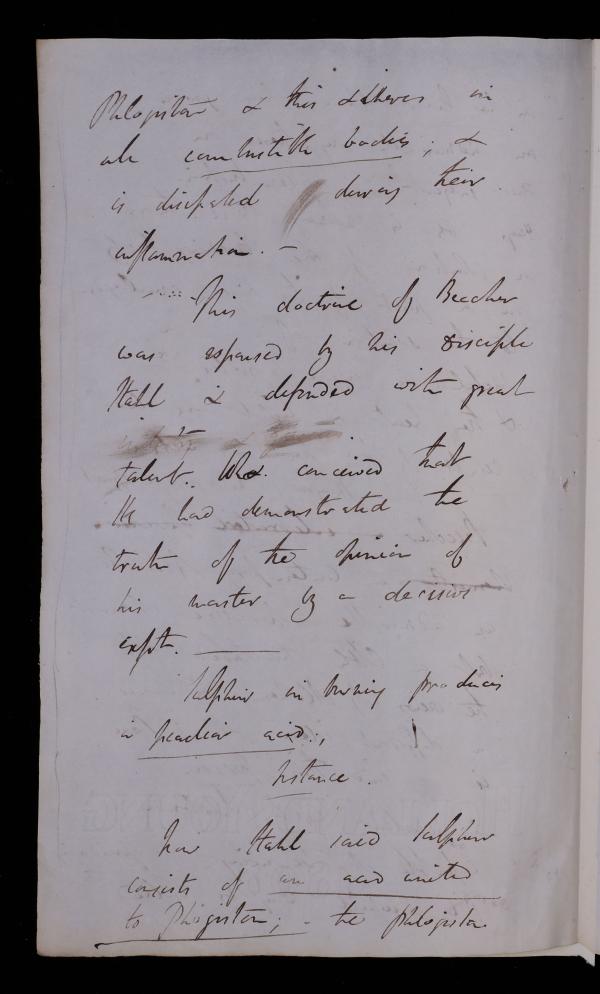 Phlogiston & this adheres in
all combustible bodies; &
is dissipated during their
inflammation. —
This doctrine of Beccher
was espoused by his Disciple
Stahl & defended with great
talent. Who conceived that
He had demonstrated the
truth of the opinion of
his master by a decisive
expt. —
Sulphur in burning produces
a peculiar acid;
Instance.
Now Stahl said Sulphur
consists of an acid united
to Phlogiston; - the phlogiston